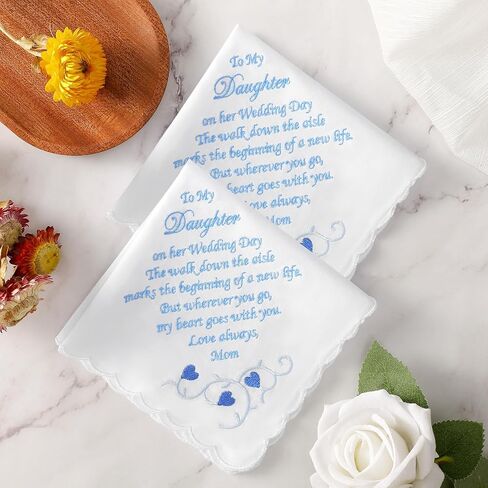 To My
Daughter
on her Wedding Day
The walk down the aisle
marks the beginning of a new life.
But wherever you go,
heart goes with you.
Love always,
Mom
To My
Daughter
on her Wedding Day
The walk down the aisle
marks the beginning of a new life.
But wherever you go,
my heart goes with you.
Love always,
Mom